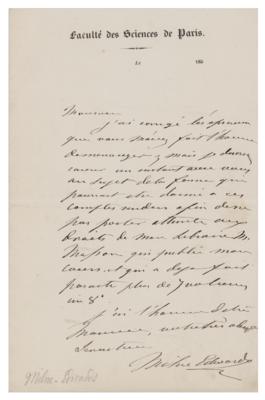 Faculté des Sciences de Paris.
Le 185
Monsieur
J'ai corrigé les épreuves
que vous m'avez fait l'honneur
de m'envoyer mais je désire
causer un instant avec vous
au sujet de la forme que
pourrait être donné à ces
comptes rendus afin de ne
pas porter atteinte aux
droits de mon Libraire M.
Masson qui publie mon
cours et qui a déjà fait
paraitre plus de 7
un 8e
J'ai l'honneur d'être
Monsieur, votre très
Serviteur
Milne Edwards
Milne-Edwards